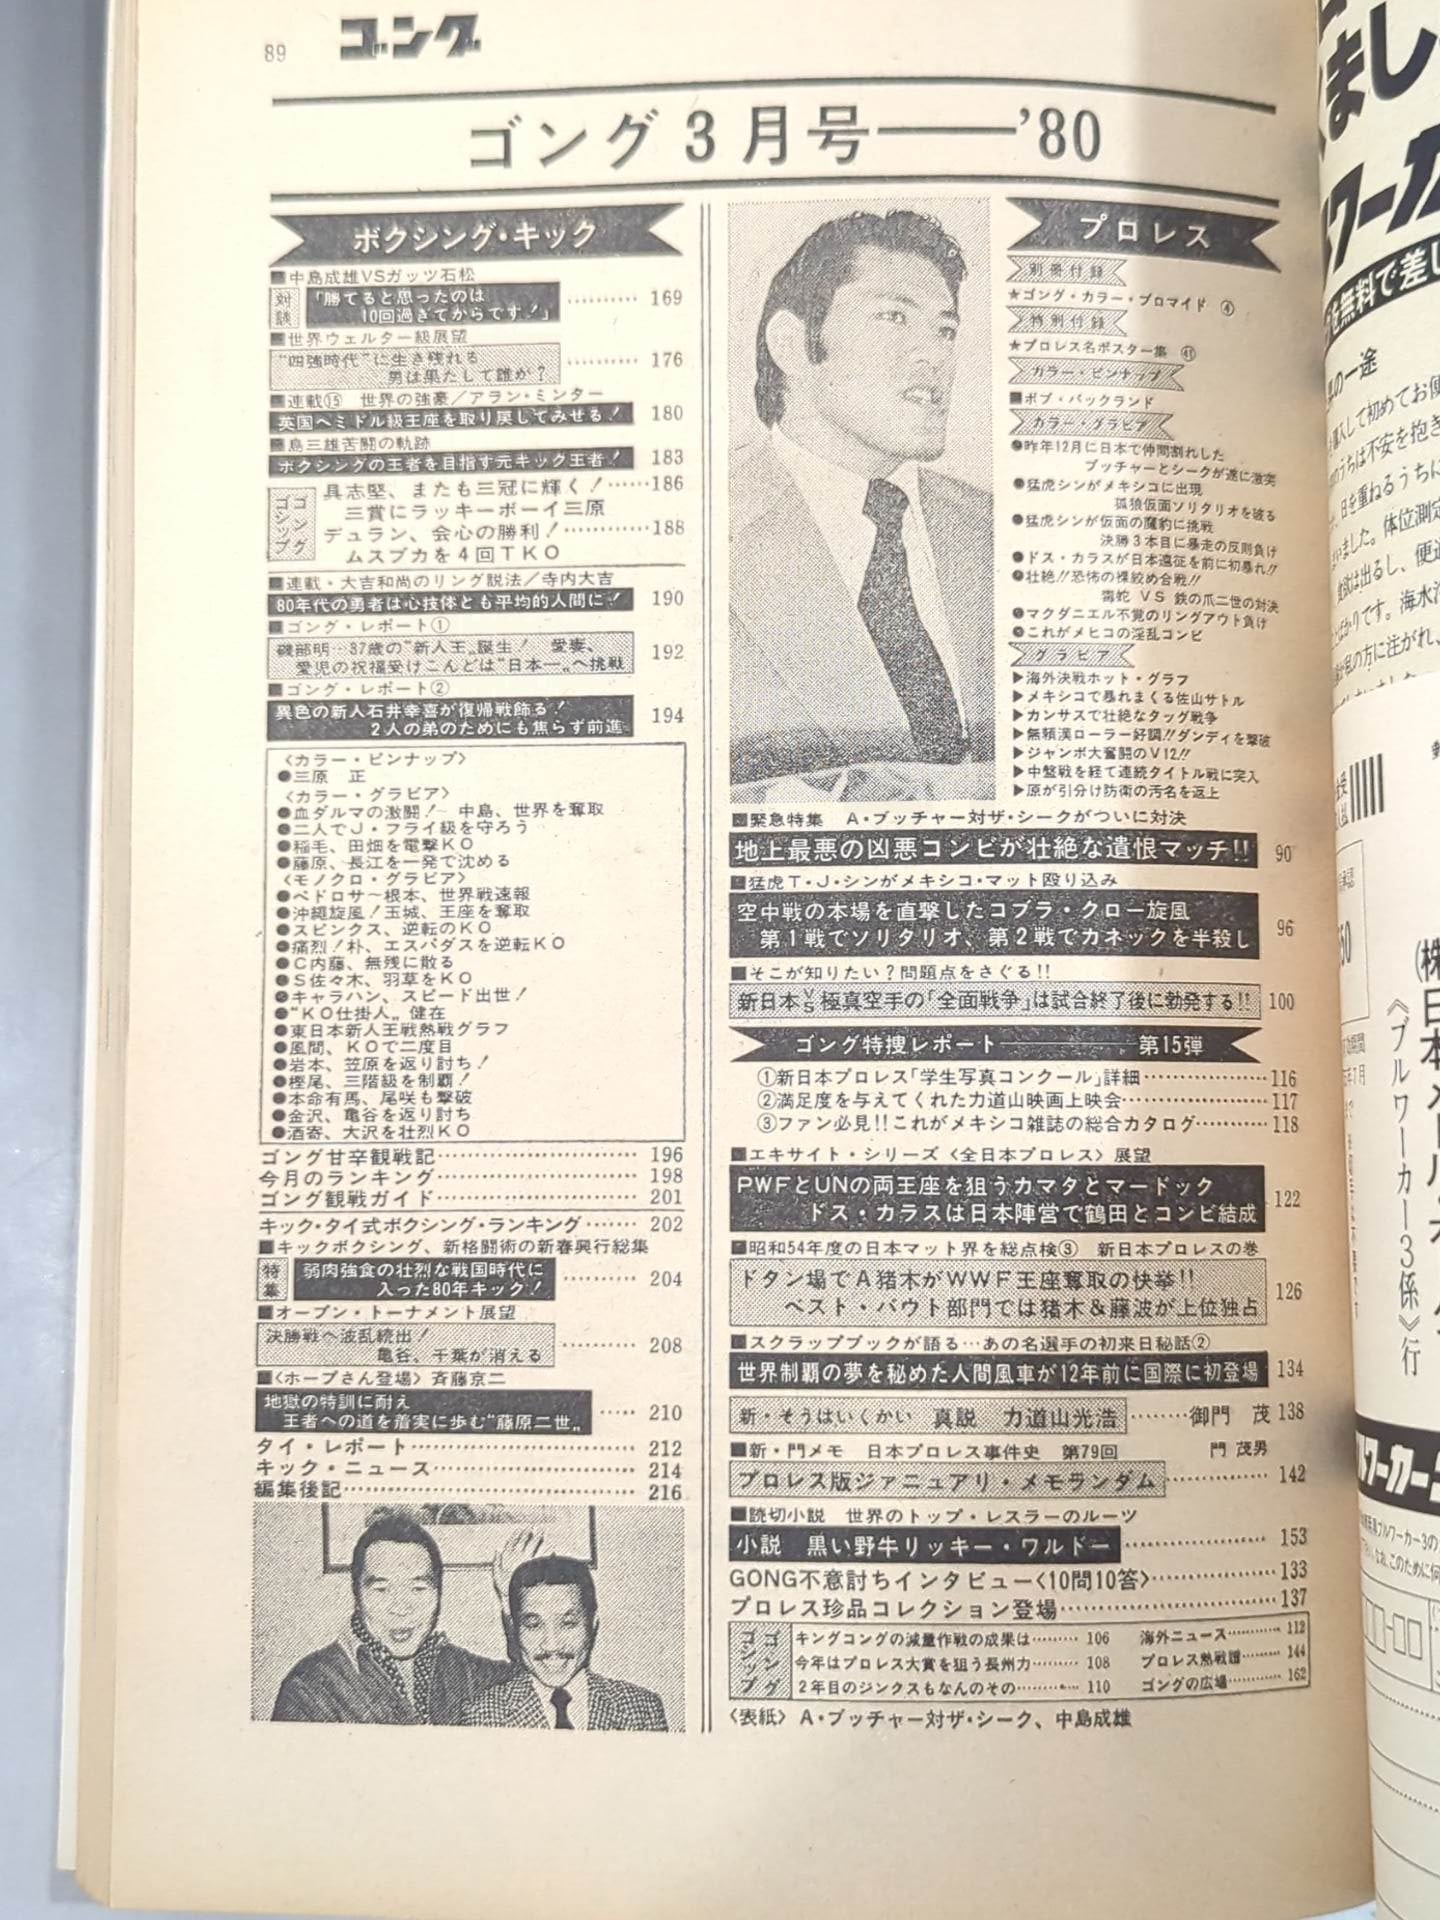 89
ゴング
ゴング3月号――'80
ボクシング・キック
■中島成雄VSガッツ石松
対談
「勝てると思ったのは
10回過ぎてからです!」
169
■世界ウェルター級展望
"四強時代"に生き残れる
男は果たして誰か?
176
■連載⑮ 世界の強豪/アラン・ミンター
英国へミドル級王座を取り戻してみせる!
180
■島三雄苦闘の軌跡
ボクシングの王者を目指す元キック王者!
183
ゴングゴシップ
具志堅、またも三冠に輝く!……186
三賞にラッキーボーイ三原
デュラン、会心の勝利!…………188
ムスブカを4回TKO
■連載・大吉和尚のリング説法/寺内大吉
80年代の勇者は心技体とも平均的人間に!
190
■ゴング・レポート①
磯部明…37歳の"新人王"誕生! 愛妻、
愛児の祝福受けこんどは"日本一"へ挑戦
192
■ゴング・レポート②
異色の新人石井幸喜が復帰戦飾る!
2人の弟のためにも焦らず前進
194
〈カラー・ピンナップ〉
●三原 正
〈カラー・グラビア〉
●血ダルマの激闘! 中島、世界を奪取
●二人でJ・フライ級を守ろう
●稲毛、田畑を電撃KO
●藤原、長江を一発で沈める
〈モノクロ・グラビア〉
●ペドロサ~根本、世界戦速報
●沖縄旋風!玉城、王座を奪取
●スピンクス、逆転のKO
●痛烈!朴、エスパダスを逆転KO
●C内藤、無残に散る
●S佐々木、羽草をKO
●キャラハン、スピード出世!
●"KO仕掛人"健在
●東日本新人王戦熱戦グラフ
●風間、KOで二度目
●岩本、笠原を返り討ち!
●樫尾、三階級を制覇!
●本命有馬、尾咲も撃破
●金沢、亀谷を返り討ち
●酒寄、大沢を壮烈KO
ゴング甘辛観戦記…………196
今月のランキング…………198
ゴング観戦ガイド…………201
キック・タイ式ボクシング・ランキング……202
■キックボクシング、新格闘術の新春興行総集
特集
弱肉強食の壮烈な戦国時代に
入った80年キック!
204
■オープン・トーナメント展望
決勝戦へ波乱続出!
亀谷、千葉が消える
208
■〈ホープさん登場〉斉藤京二
地獄の特訓に耐え
王者への道を着実に歩む"藤原二世"
210
タイ・レポート…………212
キック・ニュース…………214
編集後記…………216
プロレス
別冊付録
★ゴング・カラー・ブロマイド ④
特別付録
★プロレス名ポスター集 ㊶
カラー・ピンナップ
■ボブ・バックランド
カラー・グラビア
●昨年12月に日本で仲間割れした
ブッチャーとシークが遂に激突
●猛虎シンがメキシコに出現
孤狼仮面ソリタリオを破る
●猛虎シンが仮面の魔豹に挑戦
決勝3本目に暴走の反則負け
●ドス・カラスが日本遠征を前に初暴れ!!
●壮絶!!恐怖の裸絞め合戦!!
毒蛇 VS 鉄の爪二世の対決
●マクダニエル不覚のリングアウト負け
●これがメヒコの淫乱コンビ
グラビア
▶海外決戦ホット・グラフ
▶メキシコで暴れまくる佐山サトル
▶カンサスで壮絶なタッグ戦争
▶無頼漢ローラー好調!!ダンディを撃破
▶ジャンボ大奮闘のV12!!
▶中盤戦を経て連続タイトル戦に突入
▶原が引分け防衛の汚名を返上
■緊急特集 A・ブッチャー対ザ・シークがついに対決
地上最悪の凶悪コンビが壮絶な遺恨マッチ!!
90
■猛虎T・J・シンがメキシコ・マット殴り込み
空中戦の本場を直撃したコブラ・クロー旋風
第1戦でソリタリオ、第2戦でカネックを半殺し
96
■そこが知りたい?問題点をさぐる!!
新日本VS極真空手の「全面戦争」は試合終了後に勃発する!!
100
ゴング特捜レポート――第15弾
①新日本プロレス「学生写真コンクール」詳細…………116
②満足度を与えてくれた力道山映画上映会…………117
③ファン必見!!これがメキシコ雑誌の総合カタログ…………118
■エキサイト・シリーズ〈全日本プロレス〉展望
PWFとUNの両王座を狙うカマタとマードック
ドス・カラスは日本陣営で鶴田とコンビ結成
122
■昭和54年度の日本マット界を総点検③ 新日本プロレスの巻
ドタン場でA猪木がWWF王座奪取の快挙!!
ベスト・バウト部門では猪木&藤波が上位独占
126
■スクラップブックが語る…あの名選手の初来日秘話②
世界制覇の夢を秘めた人間風車が12年前に国際に初登場
134
新・そうはいくかい 真説 力道山光浩………御門 茂 138
■新・門メモ 日本プロレス事件史 第79回 門 茂男
プロレス版ジャニュアリ・メモランダム…………142
■読切小説 世界のトップ・レスラーのルーツ
小説 黒い野牛リッキー・ワルドー…………153
GONG不意討ちインタビュー〈10問10答〉…………133
プロレス珍品コレクション登場…………137
ゴングゴシップ
キングコングの減量作戦の成果は………106
今年はプロレス大賞を狙う長州力………108
2年目のジンクスもなんのその…………110
海外ニュース…………112
プロレス熱戦譜…………144
ゴングの広場…………162
〈表紙〉A・ブッチャー対ザ・シーク、中島成雄